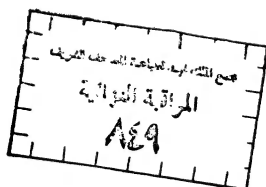 مجمع الملك فهد لطباعة المصحف الشريف
المراقبة النهائية
٨٤٩